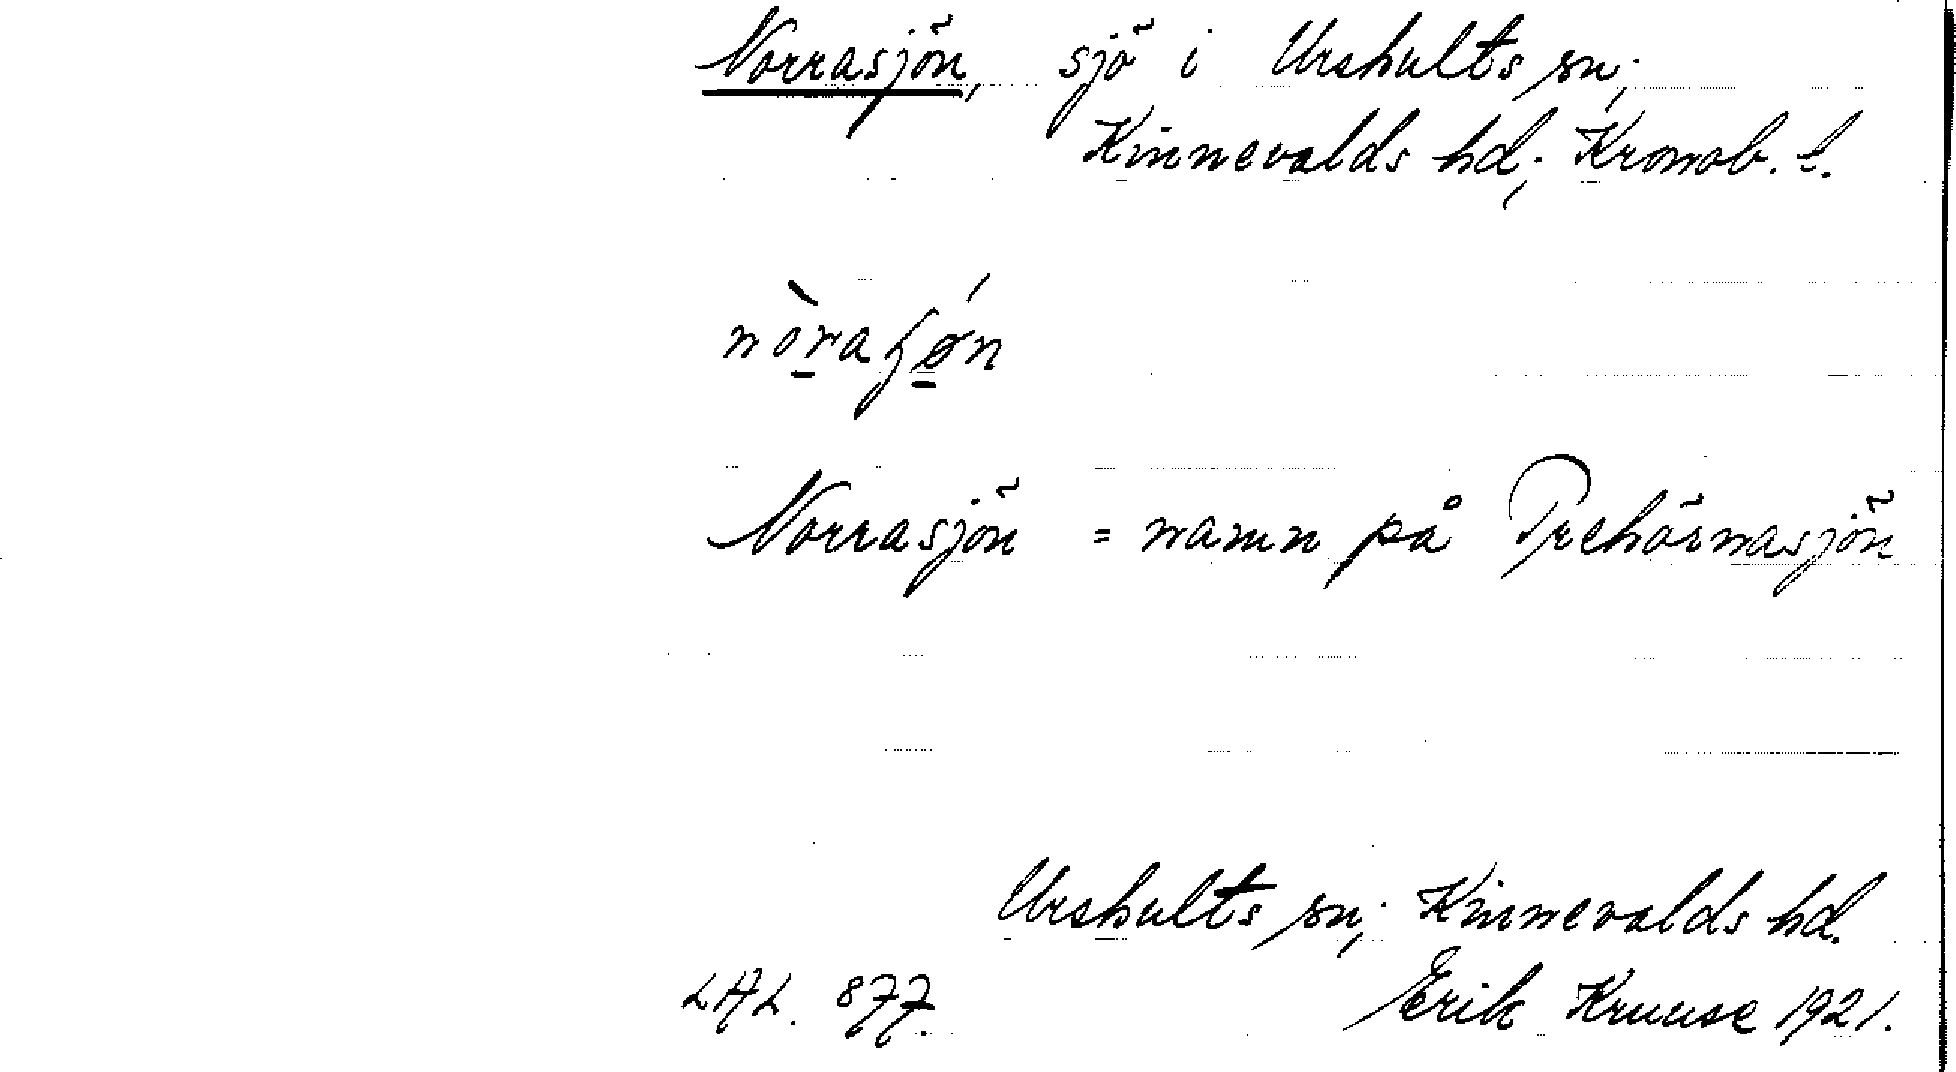 Norrasjön, sjö i Urshults sn;
Kinnevalds hd; Kronob. l.
nòraʃǿn
Norrasjön = namn på Trehörnasjön
Urshults sn; Kinnevalds hd.
LAL. 877. Erik Kruuse 1921.